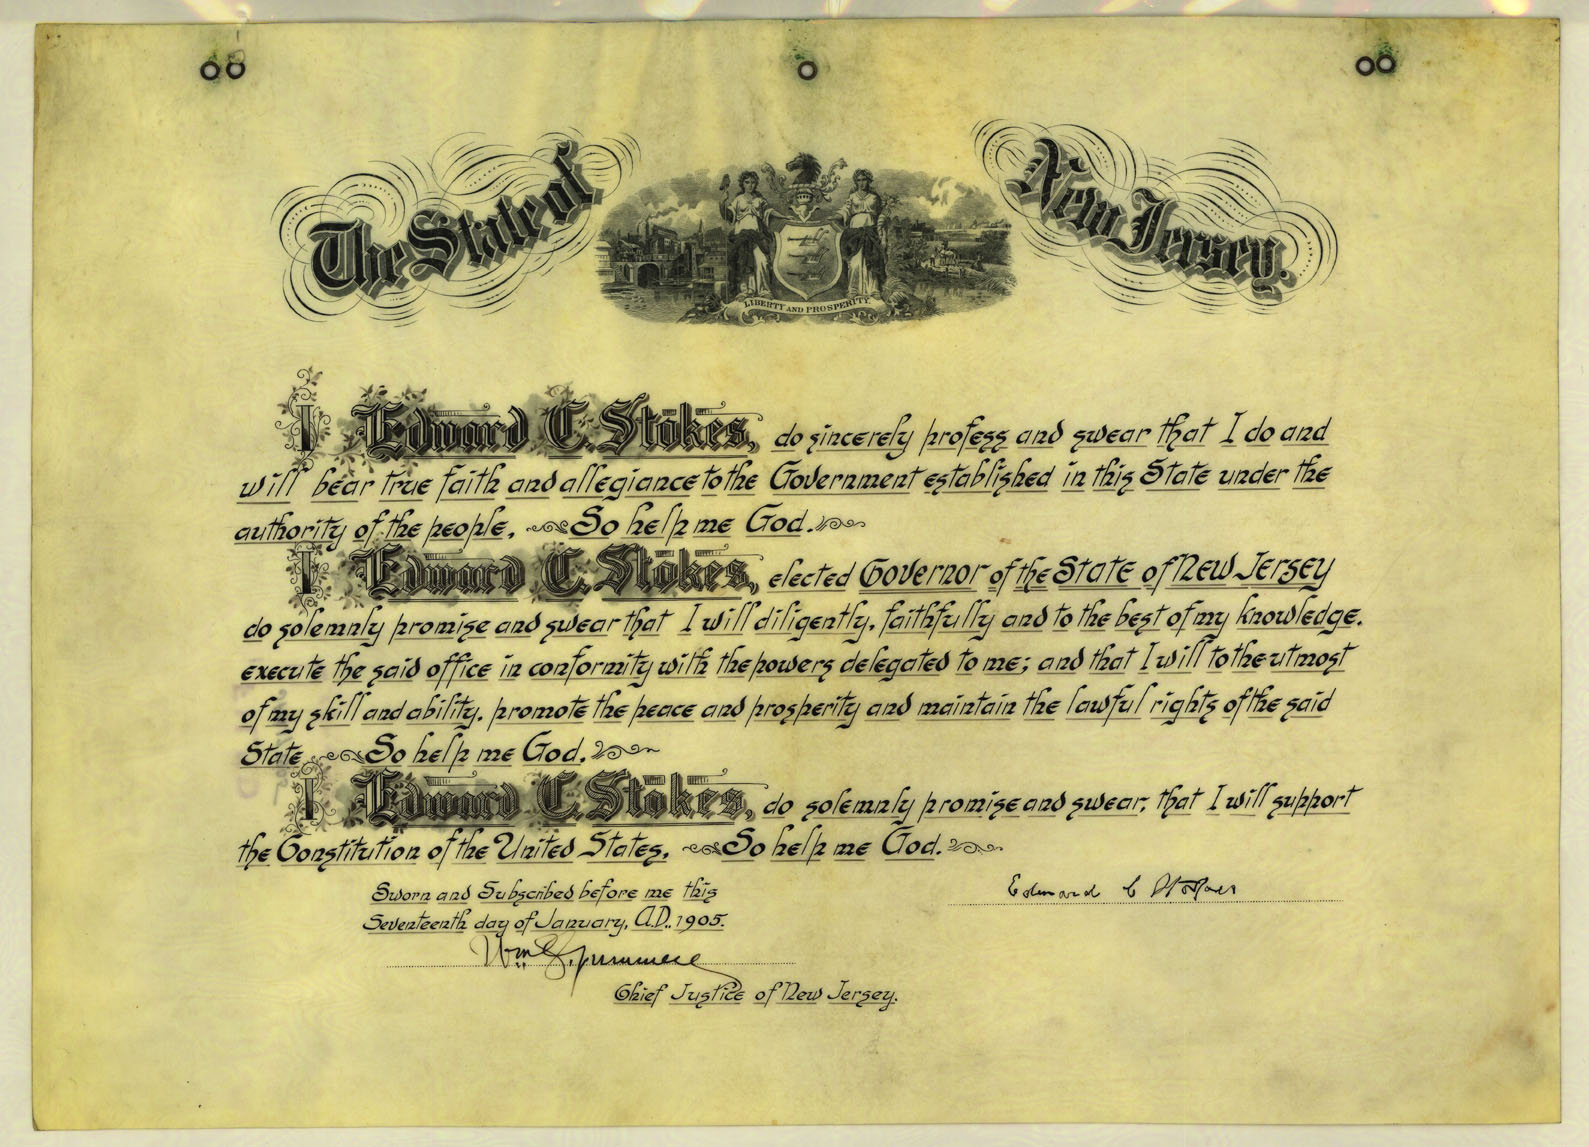 The State of New Jersey.
LIBERTY AND PROSPERITY
I Edward C. Stokes, do sincerely profess and swear that I do and
will bear true faith and allegiance to the Government established in this State under the
authority of the people, So help me God.
I Edward C. Stokes, elected Governor of the State of New Jersey
do solemnly promise and swear that I will diligently, faithfully and to the best of my knowledge,
execute the said office in conformity with the powers delegated to me; and that I will to the utmost
of my skill and ability, promote the peace and prosperity and maintain the lawful rights of the said
State So help me God.
I Edward C. Stokes, do solemnly promise and swear, that I will support
the Constitution of the United States, So help me God.
Sworn and Subscribed before me this
Edward C Stokes
Seventeenth day of January, A.D., 1905.
Wm S. Gummere
Chief Justice of New Jersey.